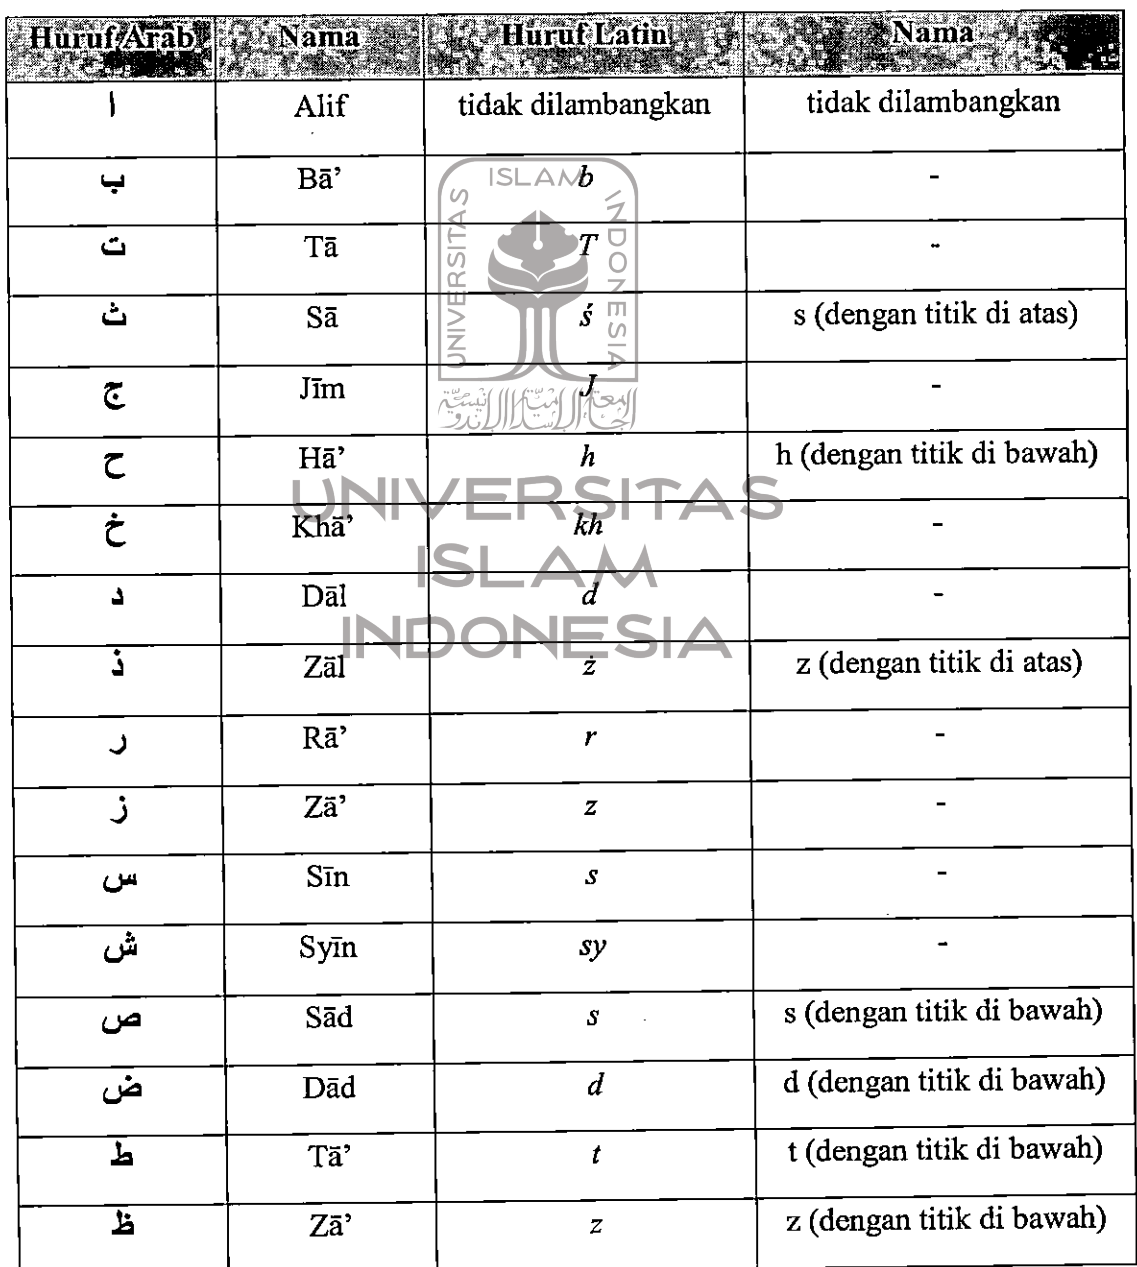 Huruf Arab Nama Huruf Latin Nama
ا Alif tidak dilambangkan tidak dilambangkan
ب Bā’ b -
ت Tā T -
ث Sā ś s (dengan titik di atas)
ج Jīm J -
ح Hā’ h h (dengan titik di bawah)
خ Khā’ kh -
د Dāl d -
ذ Zāl ż z (dengan titik di atas)
ر Rā’ r -
ز Zā’ z -
س Sīn s -
ش Syīn sy -
ص Sād s s (dengan titik di bawah)
ض Dād d d (dengan titik di bawah)
ط Tā’ t t (dengan titik di bawah)
ظ Zā’ z z (dengan titik di bawah)
UNIVERSITAS ISLAM INDONESIA
UNIVERSITAS
ISLAM
INDONESIA